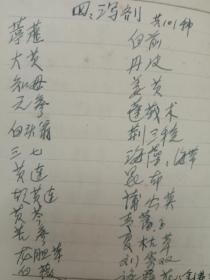 四、泻剂 共101种
葶苈
大黄
知母
元参
白头翁
三七
黄连
胡黄连
黄芩
苦参
龙胆草
白前
丹皮
姜黄
蓬莪术
荆三棱
海藻、海带
昆布
蒲公英
夏枯草